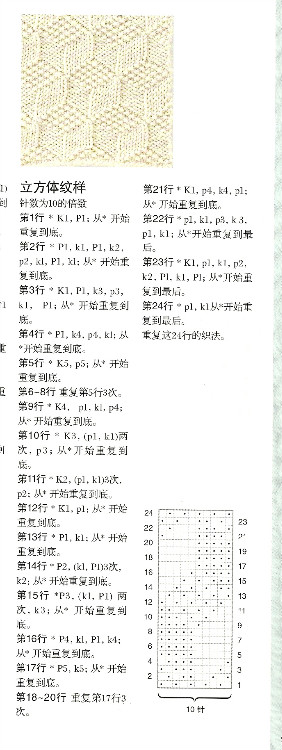 立方体纹样
针数为10的倍数
第1行 * K1, P1; 从* 开始
重复到底。
第2行 * P1, k1, P1, k2,
p2, k1, P1, k1; 从* 开始重
复到底。
第3行 * K1, P1, k3, p3,
k1, P1; 从* 开始重复到
底。
第4行 * P1, k4, p4, k1; 从
*开始重复到底。
第5行 * K5, p5; 从* 开始
重复到底。
第6~8行 重复第5行3次。
第9行 * K4, p1, k1, p4;
从* 开始重复到底。
第10行 * K3, (p1, k1)两
次, p3; 从*开始重复到
底。
第11行 * K2, (p1, k1)3次,
p2; 从* 开始重复到底。
第12行 * K1, p1; 从* 开始
重复到底。
第13行 * P1, k1; 从* 开始
重复到底。
第14行 * P2, (k1, P1)3次,
k2; 从* 开始重复到底。
第15行 *P3, (k1, P1) 两
次, k3; 从* 开始重复到
底。
第16行 * P4, k1, P1, k4;
从* 开始重复到底。
第17行 * P5, k5; 从* 开始
重复到底。
第18~20行 重复第17行3
次。
第21行 * K1, p4, k4, p1;
从* 开始重复到底。
第22行 * p1, k1, p3, k3,
p1, k1; 从*开始重复到最
后。
第23行 * K1, p1, k1, p2,
k2, P1, k1, P1; 从*开始重
复到最后。
第24行 * p1, k1从*开始重
复到最后。
重复这24行的织法。
24
23
22
21
20
19
18
17
16
15
14
13
12
11
10
9
8
7
6
5
4
3
2
1
10 针